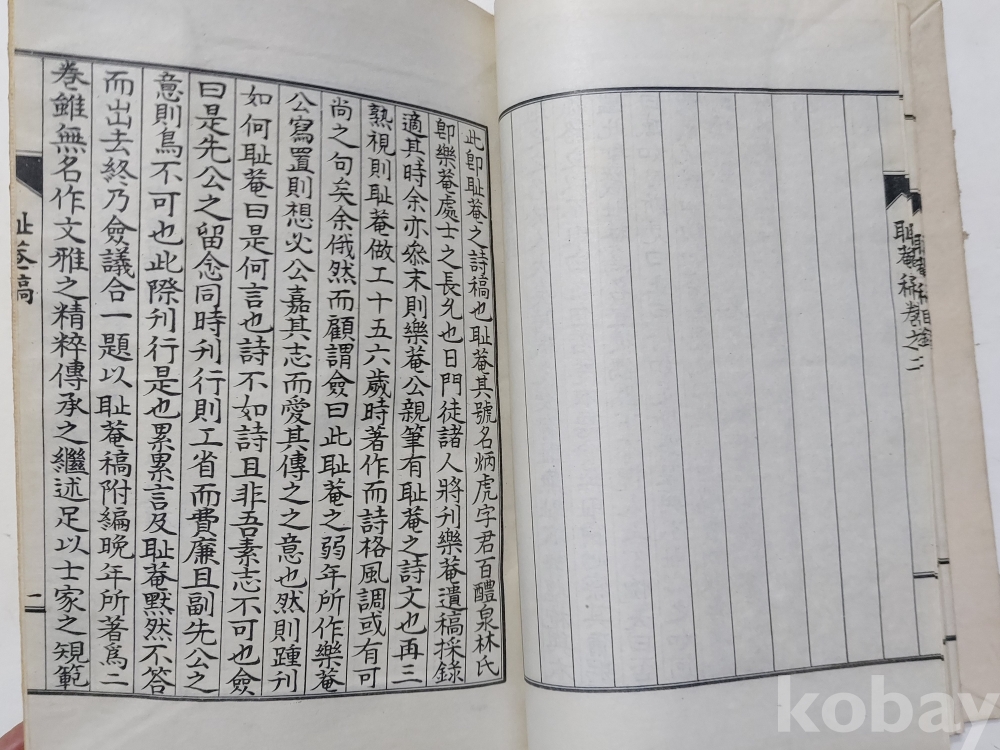 恥菴稿卷之二
此卽恥菴之詩稿也恥菴其號名炳虎字君百醴泉林氏
卽樂菴處士之長允也日門徒諸人將刊樂菴遺稿採錄
適其時余亦叅末則樂菴公親筆有恥菴之詩文也再三
熟視則恥菴做工十五六歲時著作而詩格風調或有可
尚之句矣余俄然而顧謂僉曰此恥菴之弱年所作樂菴
公寫置則想必公嘉其志而愛其傳之之意也然則踵刊
如何恥菴曰是何言也詩不如詩且非吾素志不可也僉
曰是先公之留念同時刊行則工省而費廉且副先公之
意則鳥不可也此際刊行是也累累言及恥菴默然不答
而出去終乃僉議合一題以恥菴稿附編晚年所著爲二
卷雖無名作文雅之精粹傳承之繼述足以士家之規範
恥菴稿
二
kobay